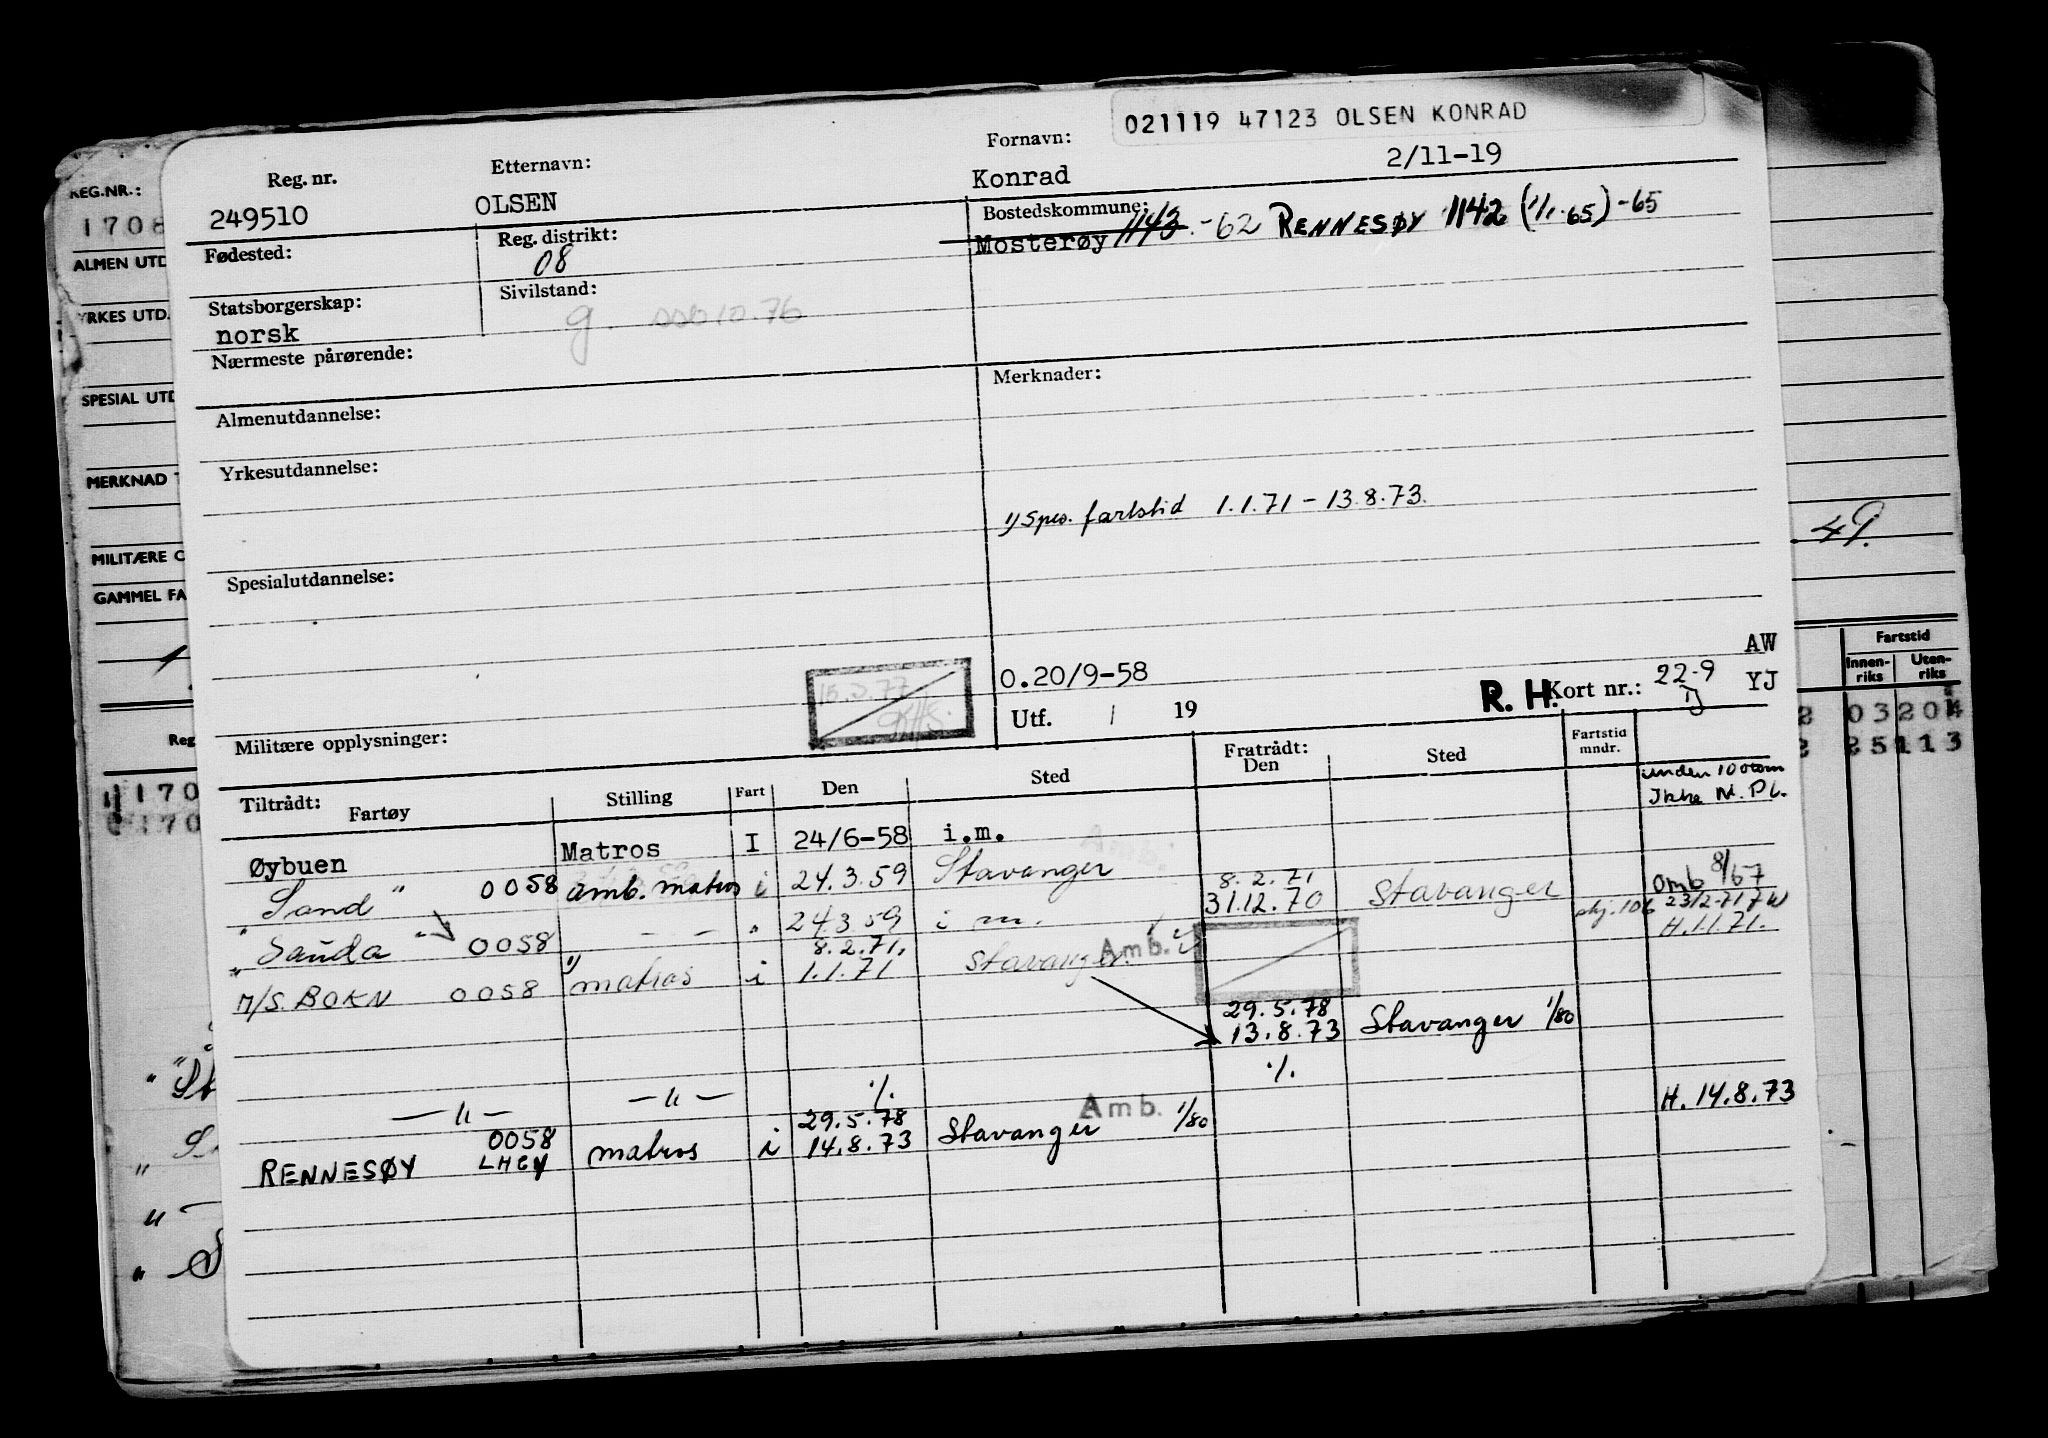 021119 47123 OLSEN KONRAD
Reg. nr. Etternavn: Fornavn:
249510 OLSEN Konrad 2/11-19
Fødested: Reg. distrikt: Bostedskommune:
08 Mosterøy 1143 -62 RENNESØY 1142 (1/1-65) -65
Statsborgerskap: Sivilstand:
norsk g.
Nærmeste pårørende: Merknader:
Almenutdannelse:
Yrkesutdannelse:
1) Spes. fartstid 1.1.71 - 13.8.73.
Spesialutdannelse:
AW
O.20/9-58
R. H. Kort nr.: 22-9 YJ
Utf. / 19
Militære opplysninger:
Tiltrådt: Fartøy Stilling Fart Den Sted Fratrådt: Den Sted Fartstid mndr.
under 100 tonn
Ikke M. Pl.
Øybuen Matros I 24/6-58 i.m.
" Sand " 0058 amb. matros i 24.3.59 Stavanger 8.2.71 31.12.70 Stavanger Omb 8/67
" Sauda " 0058 " - - " 24.3.59 i m. 23/2-71
H. 1.1.71.
M/S. BOKN 0058 1) matros i 8.2.71. 1.1.71 Stavanger Amb. i
29.5.78
13.8.73 Stavanger 1/80
./.
— " — — " — ./.
H. 14.8.73
RENNESØY 0058 LHCY matros i 29.5.78 14.8.73 Stavanger Amb. 1/80
REG.NR.:
1708
ALMEN UTD
YRKES UTD.
SPESIAL UTD
MERKNAD
MILITÆRE O
GAMMEL FA
Reg
170
170
49.
Fartstid
Innen-riks Uten-riks
03 204
25 113